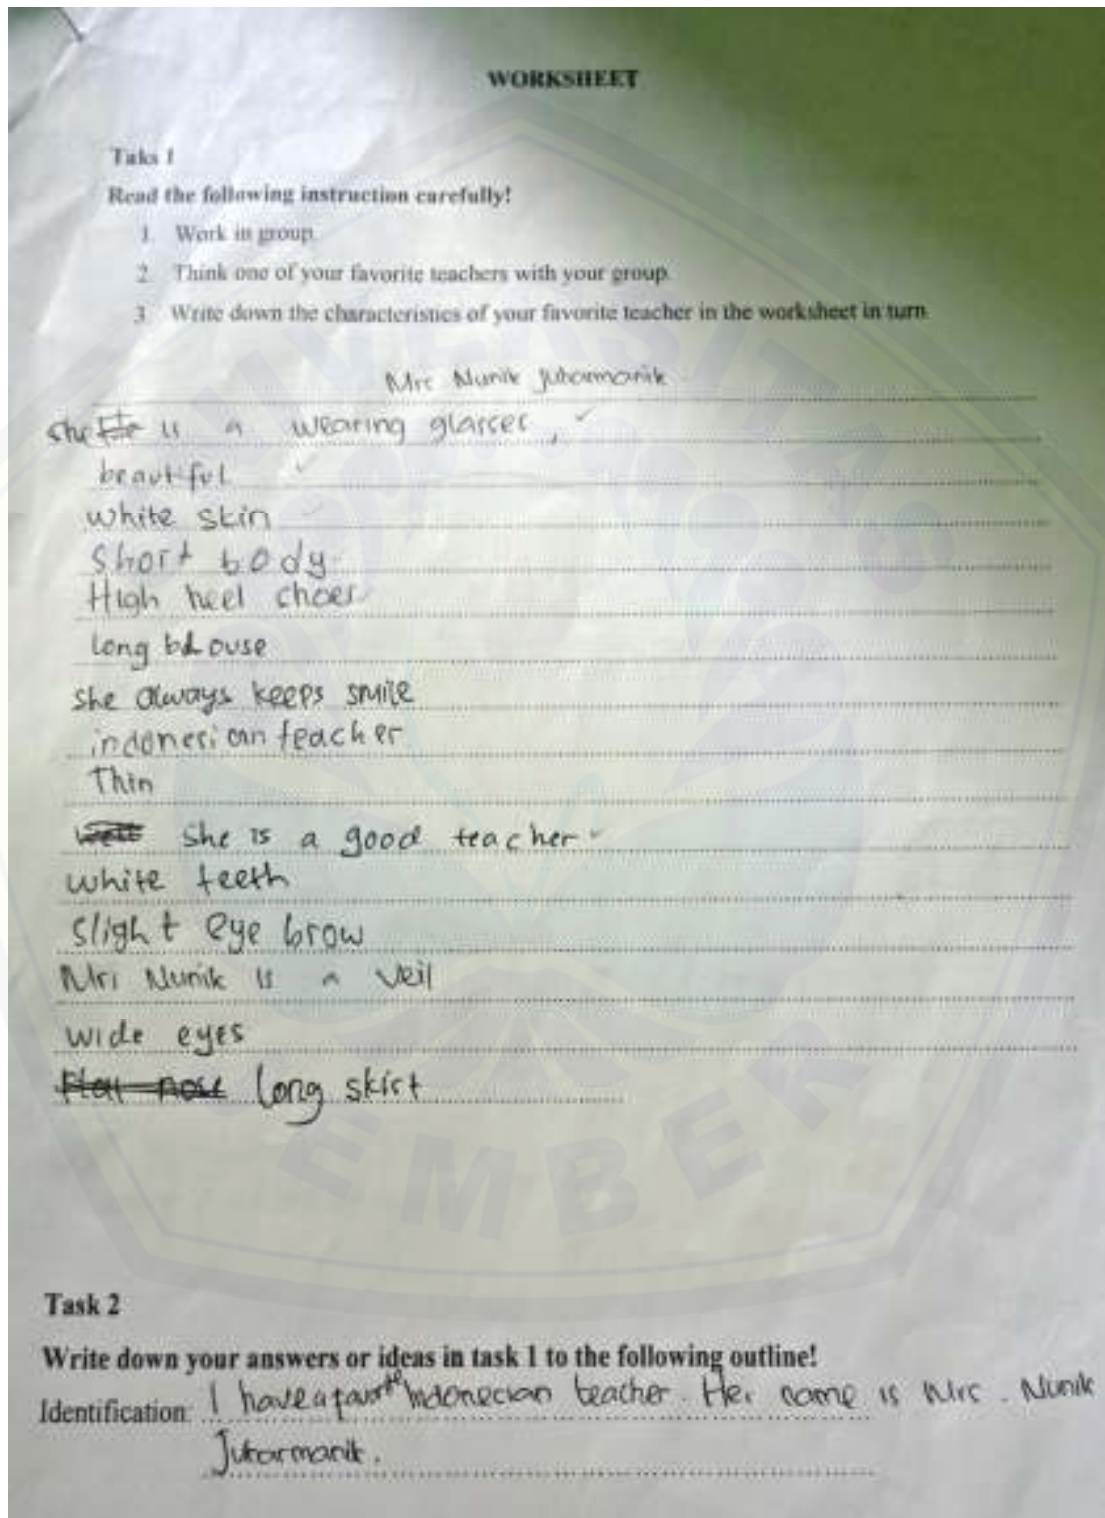 WORKSHEET
Taks 1
Read the following instruction carefully!
1. Work in group.
2. Think one of your favorite teachers with your group.
3. Write down the characteristics of your favorite teacher in the worksheet in turn.
Mrs Nunik Juharmanik
She He is a wearing glasses,
beautiful
white skin
Short body
High heel choes
long blouse
she always keeps smile
indonesian teacher
Thin
she is a good teacher
white teeth
slight eye brow
Mrs Nunik is a veil
wide eyes
Flat nose long skirt
Task 2
Write down your answers or ideas in task 1 to the following outline!
Identification: I have a favorite Indonecian teacher. Her name is Mrs. Nunik
Juharmanik.
UNIVERSITAS
JEMBER